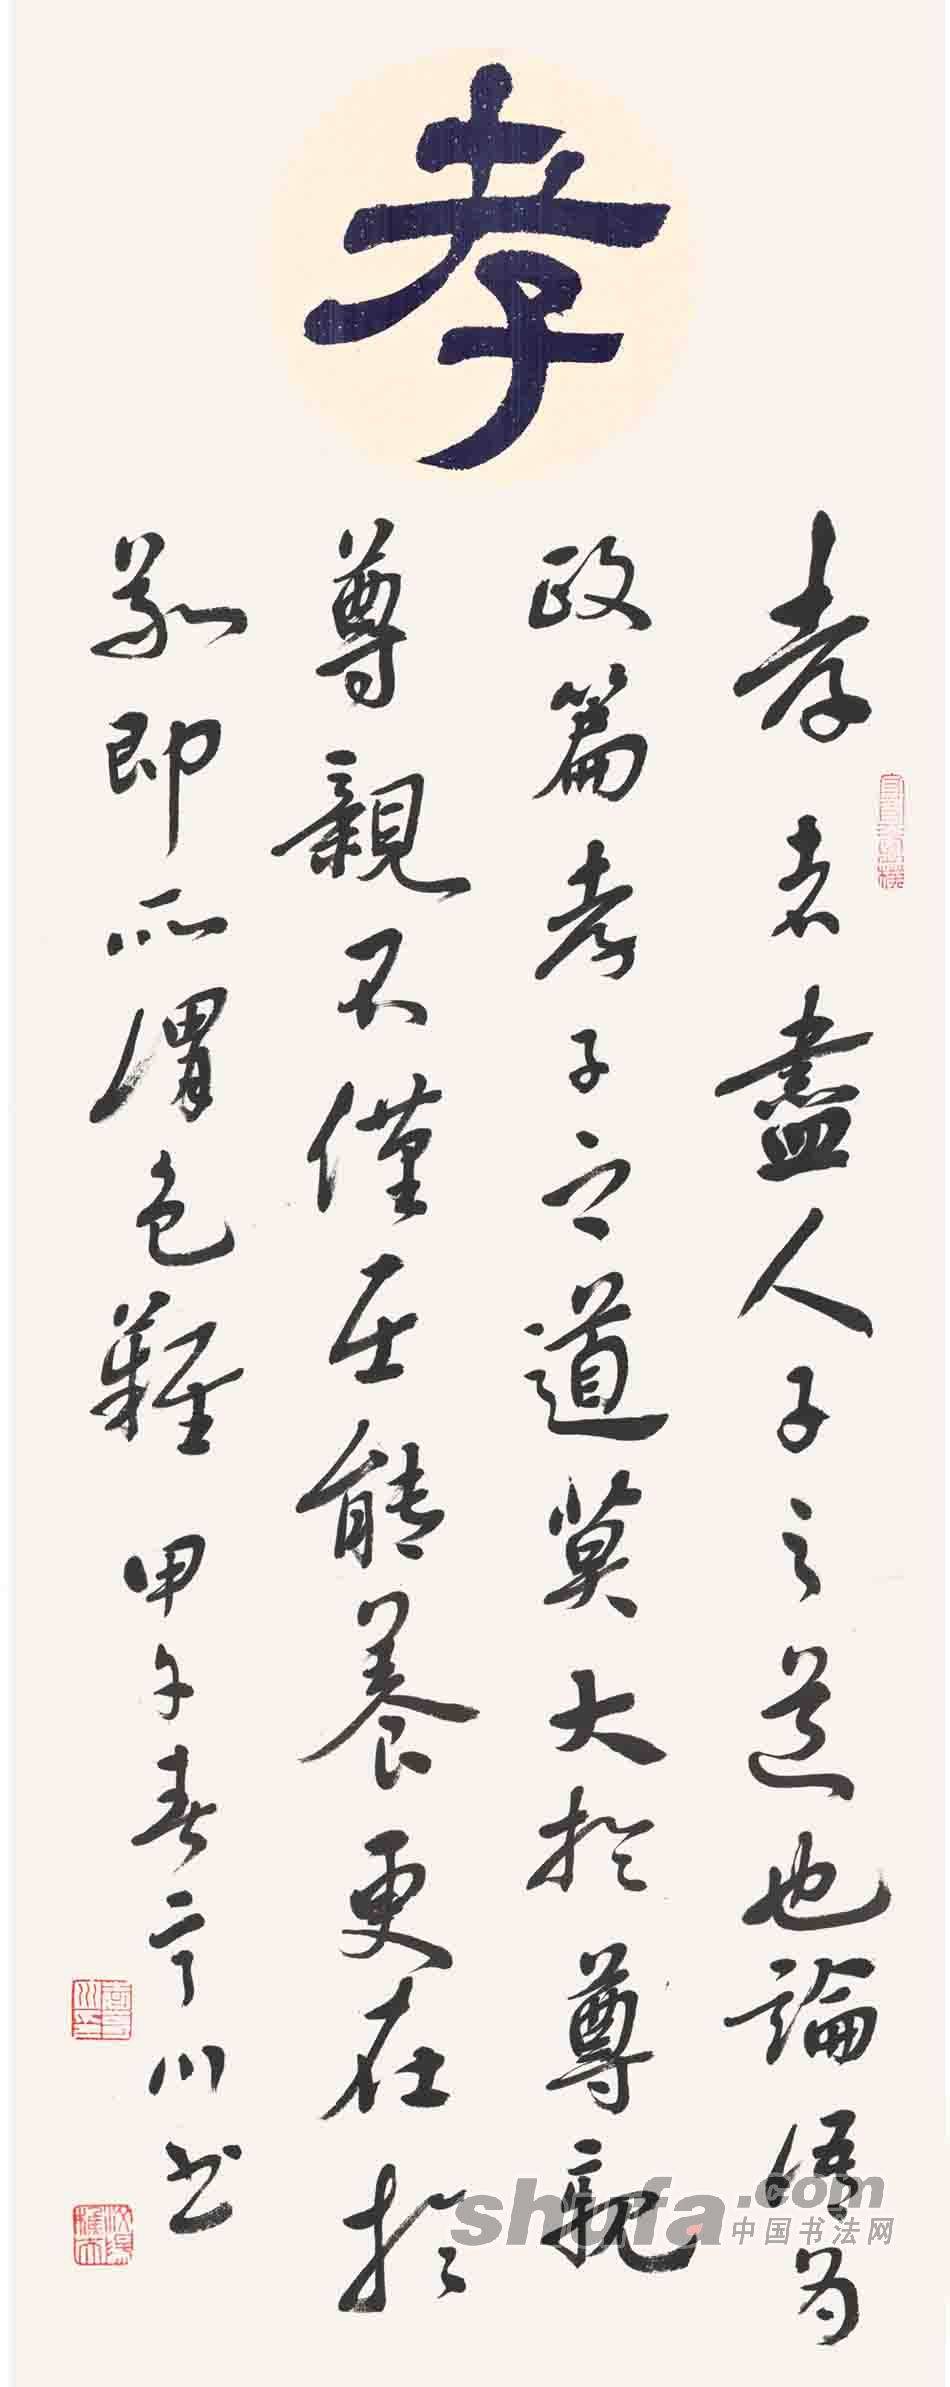 孝
孝者盡人子之道也論語為
政篇孝子之道莫大於尊親
尊親不僅在能養更在於
敬即所謂色難 甲午春川书
shufa.com
中国书法网